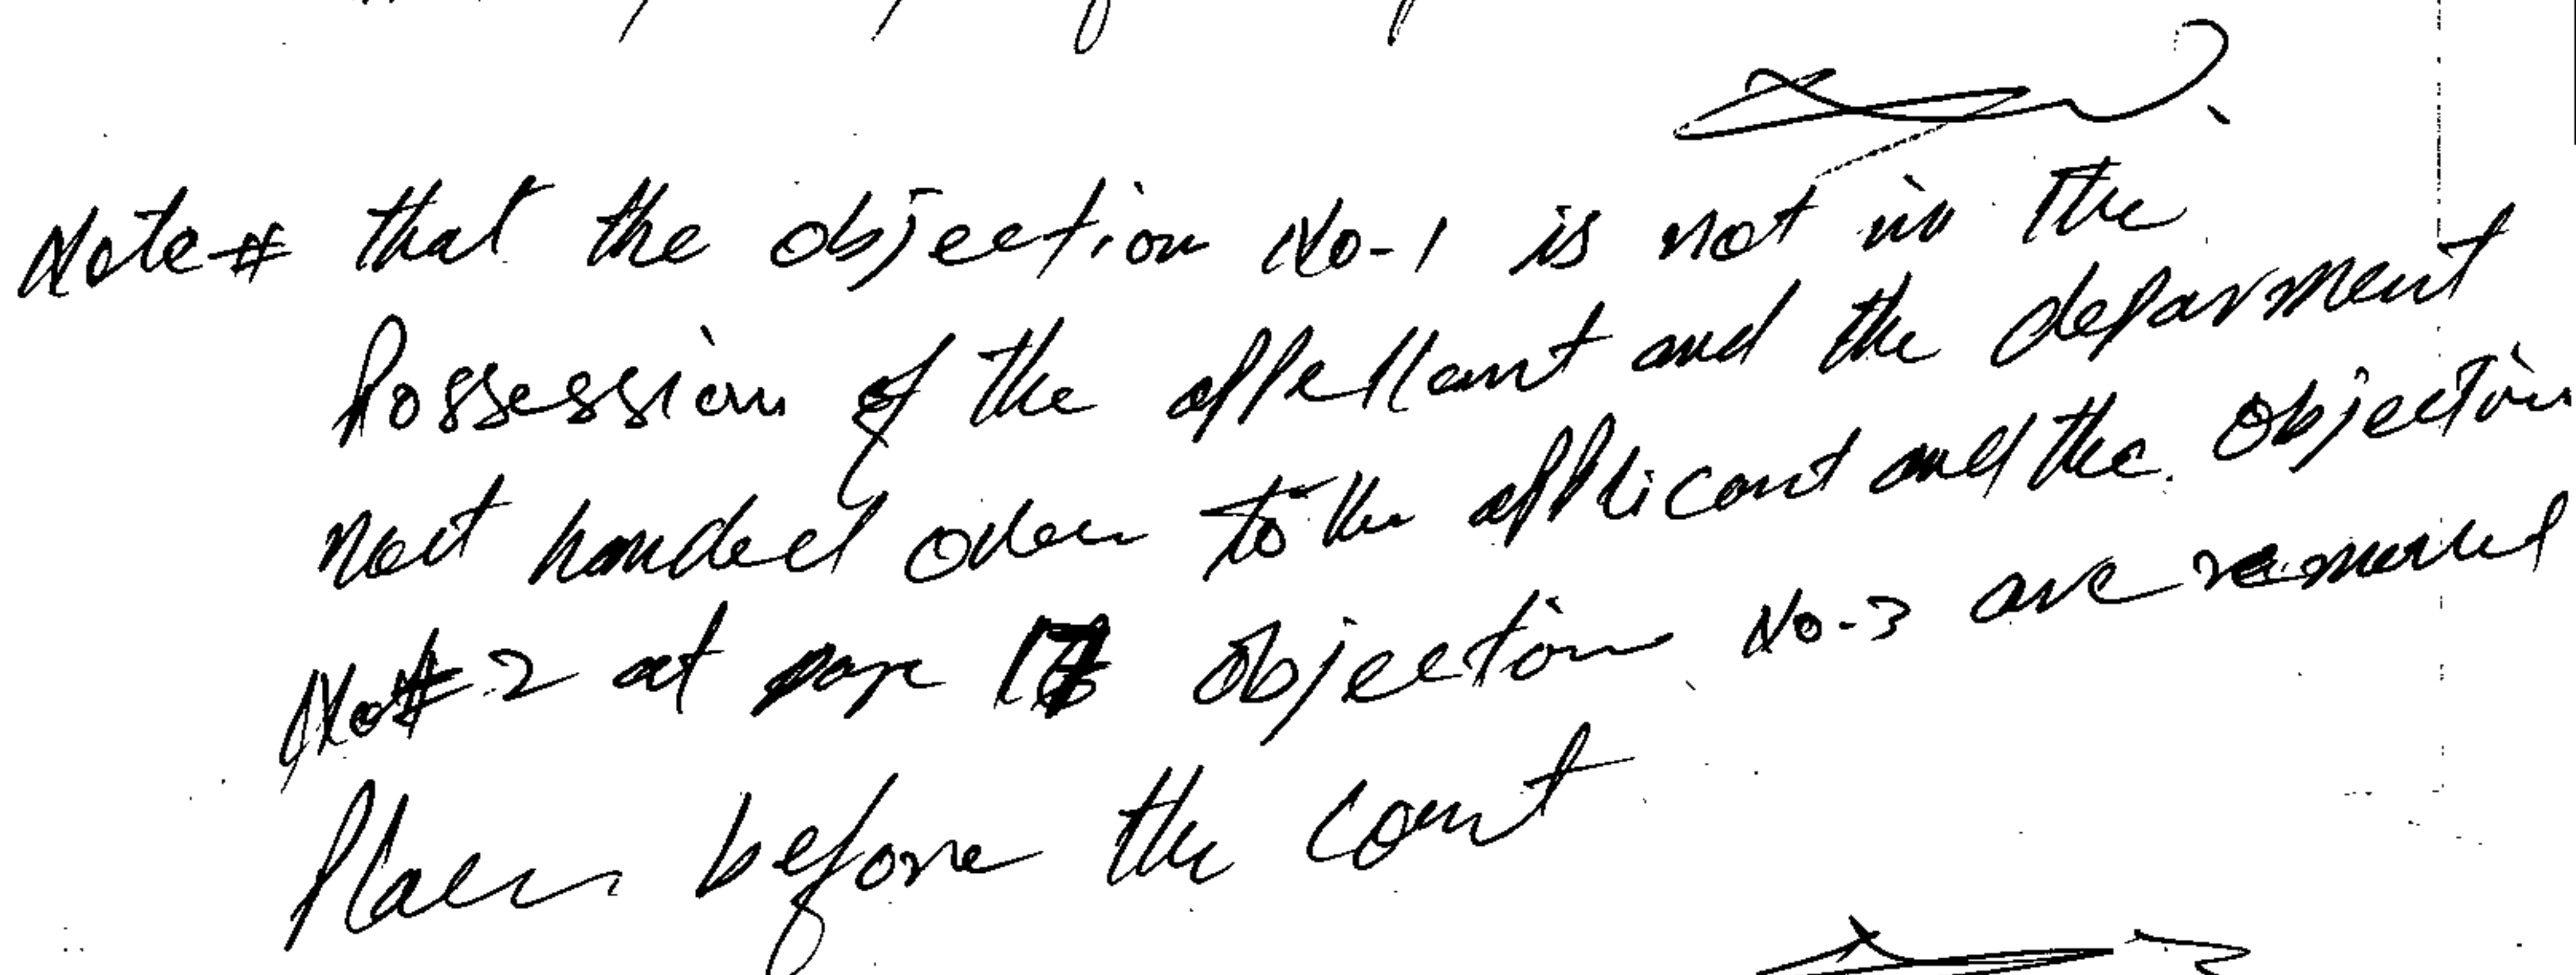 Note # that the objection No-1 is not in the
Possession of the appellant and the deparment
not handed over to the applicant and the objection
No# 2 at page objection No-3 are removed
Place before the court